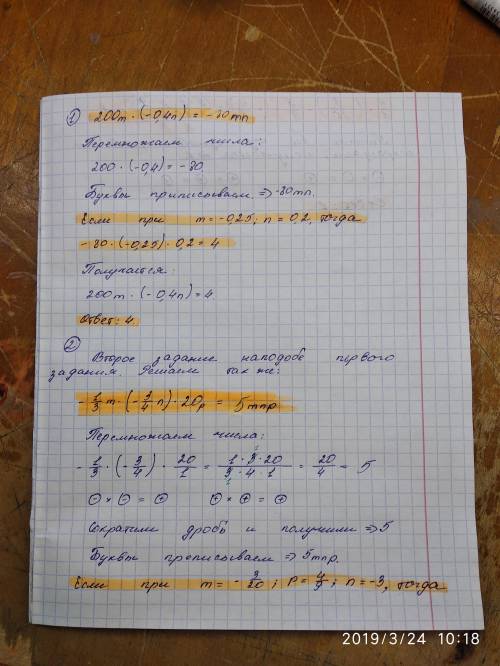 ① 200m · (-0,4n) = -80mn
Перемножаем числа:
200 · (-0,4) = -80.
Буквы приписываем => -80mn.
Если при m = -0,25; n = 0,2, тогда
-80 · (-0,25) · 0,2 = 4
Получается:
200m · (-0,4n) = 4.
Ответ: 4.
②
Второе задание наподобе первого
задания. Решаем так же:
-1/3 m · (-3/4 n) · 20p = 5mnp
Перемножаем числа:
-1/3 · (-3/4) · 20/1 = 1·3·20/3·4·1 = 20/4 = 5
⊖ × ⊖ = ⊕ ⊕ × ⊕ = ⊕
Сократили дробь и получили => 5
Буквы преписываем => 5mnp.
Если при m = -3/20; p = 4/9; n = -3, тогда
2019/3/24 10:18